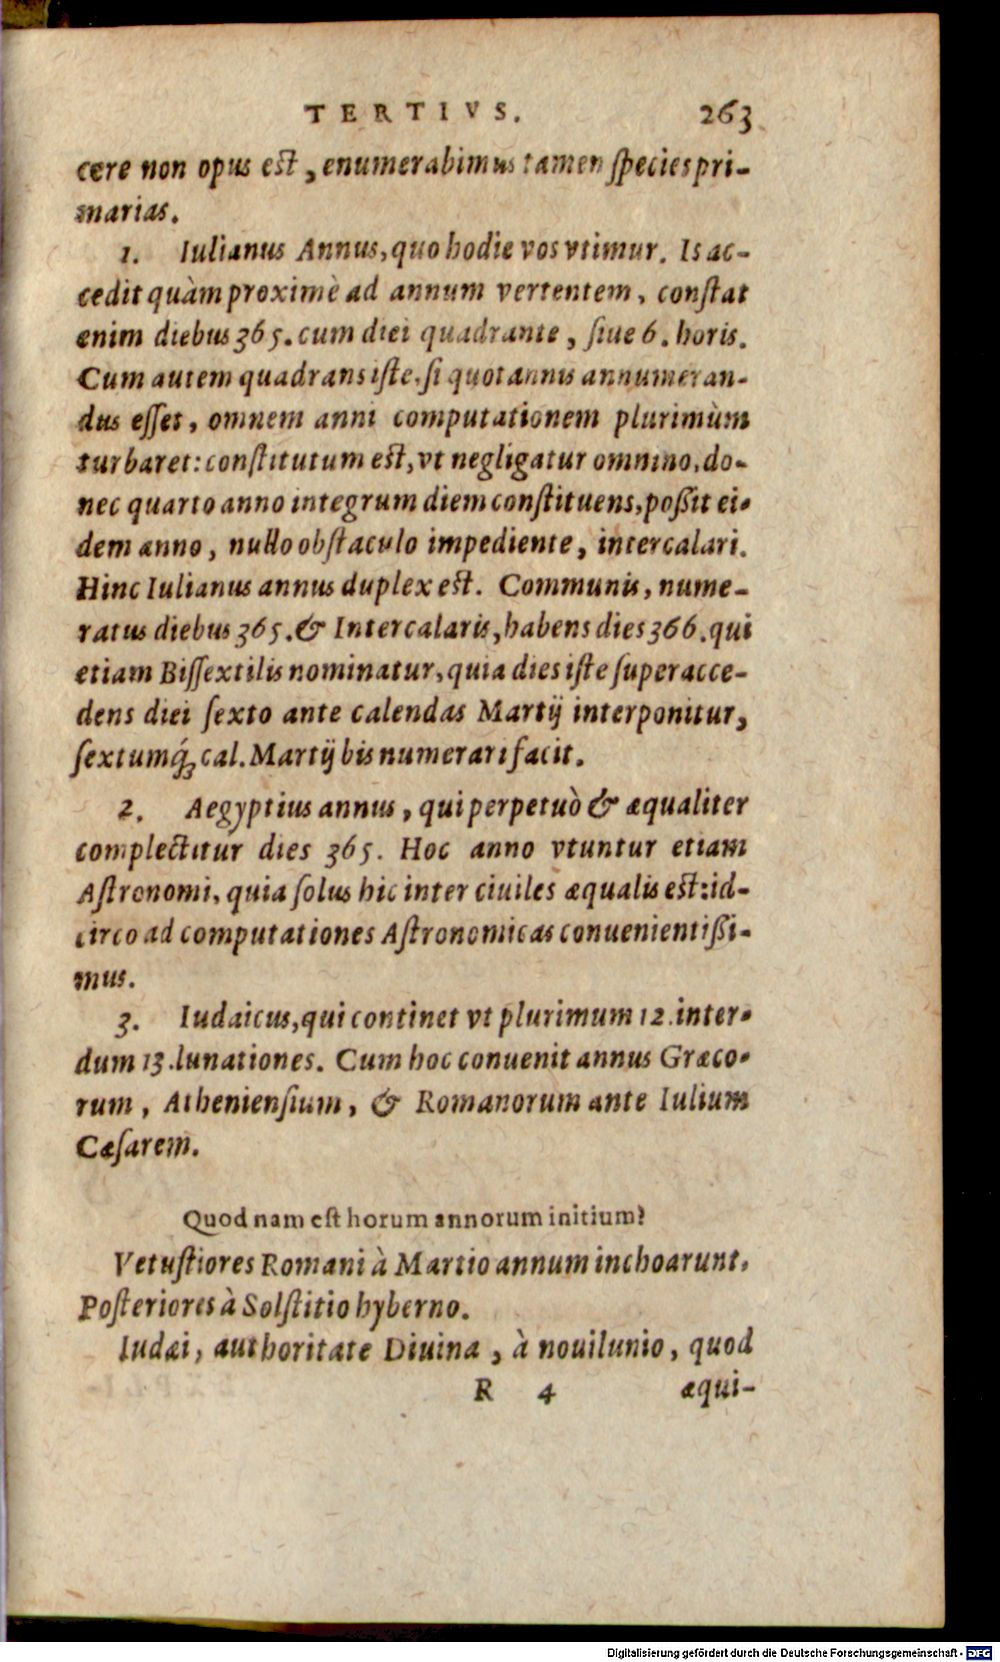 TERTIVS. 263
cere non opus est, enumerabimus tamen ſpecies pri-
marias.
1. Iulianus Annus, quo hodie vos vtimur. Is ac-
cedit quàm proximè ad annum vertentem, conſtat
enim diebus 365. cum diei quadrante, ſiue 6. horis.
Cum autem quadrans iſte, ſi quotannis annumeran-
dus eſſet, omnem anni computationem plurimùm
turbaret: conſtitutum eſt, vt negligatur omnino, do-
nec quarto anno integrum diem conſtituens, poßit ei-
dem anno, nullo obſtaculo impediente, intercalari.
Hinc Iulianus annus duplex eſt. Communis, nume-
ratus diebus 365. & Intercalaris, habens dies 366. qui
etiam Biſſextilis nominatur, quia dies iſte ſuperacce-
dens diei ſexto ante calendas Martij interponitur,
ſextumq́; cal. Martij bis numerari facit.
2. Aegyptius annus, qui perpetuò & æqualiter
complectitur dies 365. Hoc anno vtuntur etiam
Aſtronomi, quia ſolus hic inter ciuiles æqualis eſt: id-
circo ad computationes Aſtronomicas conuenientißi-
mus.
3. Iudaicus, qui continet vt plurimum 12. inter-
dum 13. lunationes. Cum hoc conuenit annus Græco-
rum, Athenienſium, & Romanorum ante Iulium
Cæſarem.
Quod nam eſt horum annorum initium?
Vetuſtiores Romani à Martio annum inchoarunt,
Poſteriores à Solſtitio hyberno.
Iudæi, authoritate Diuina, à nouilunio, quod
R 4 æqui-
Digitalisierung gefördert durch die Deutsche Forschungsgemeinschaft - DFG